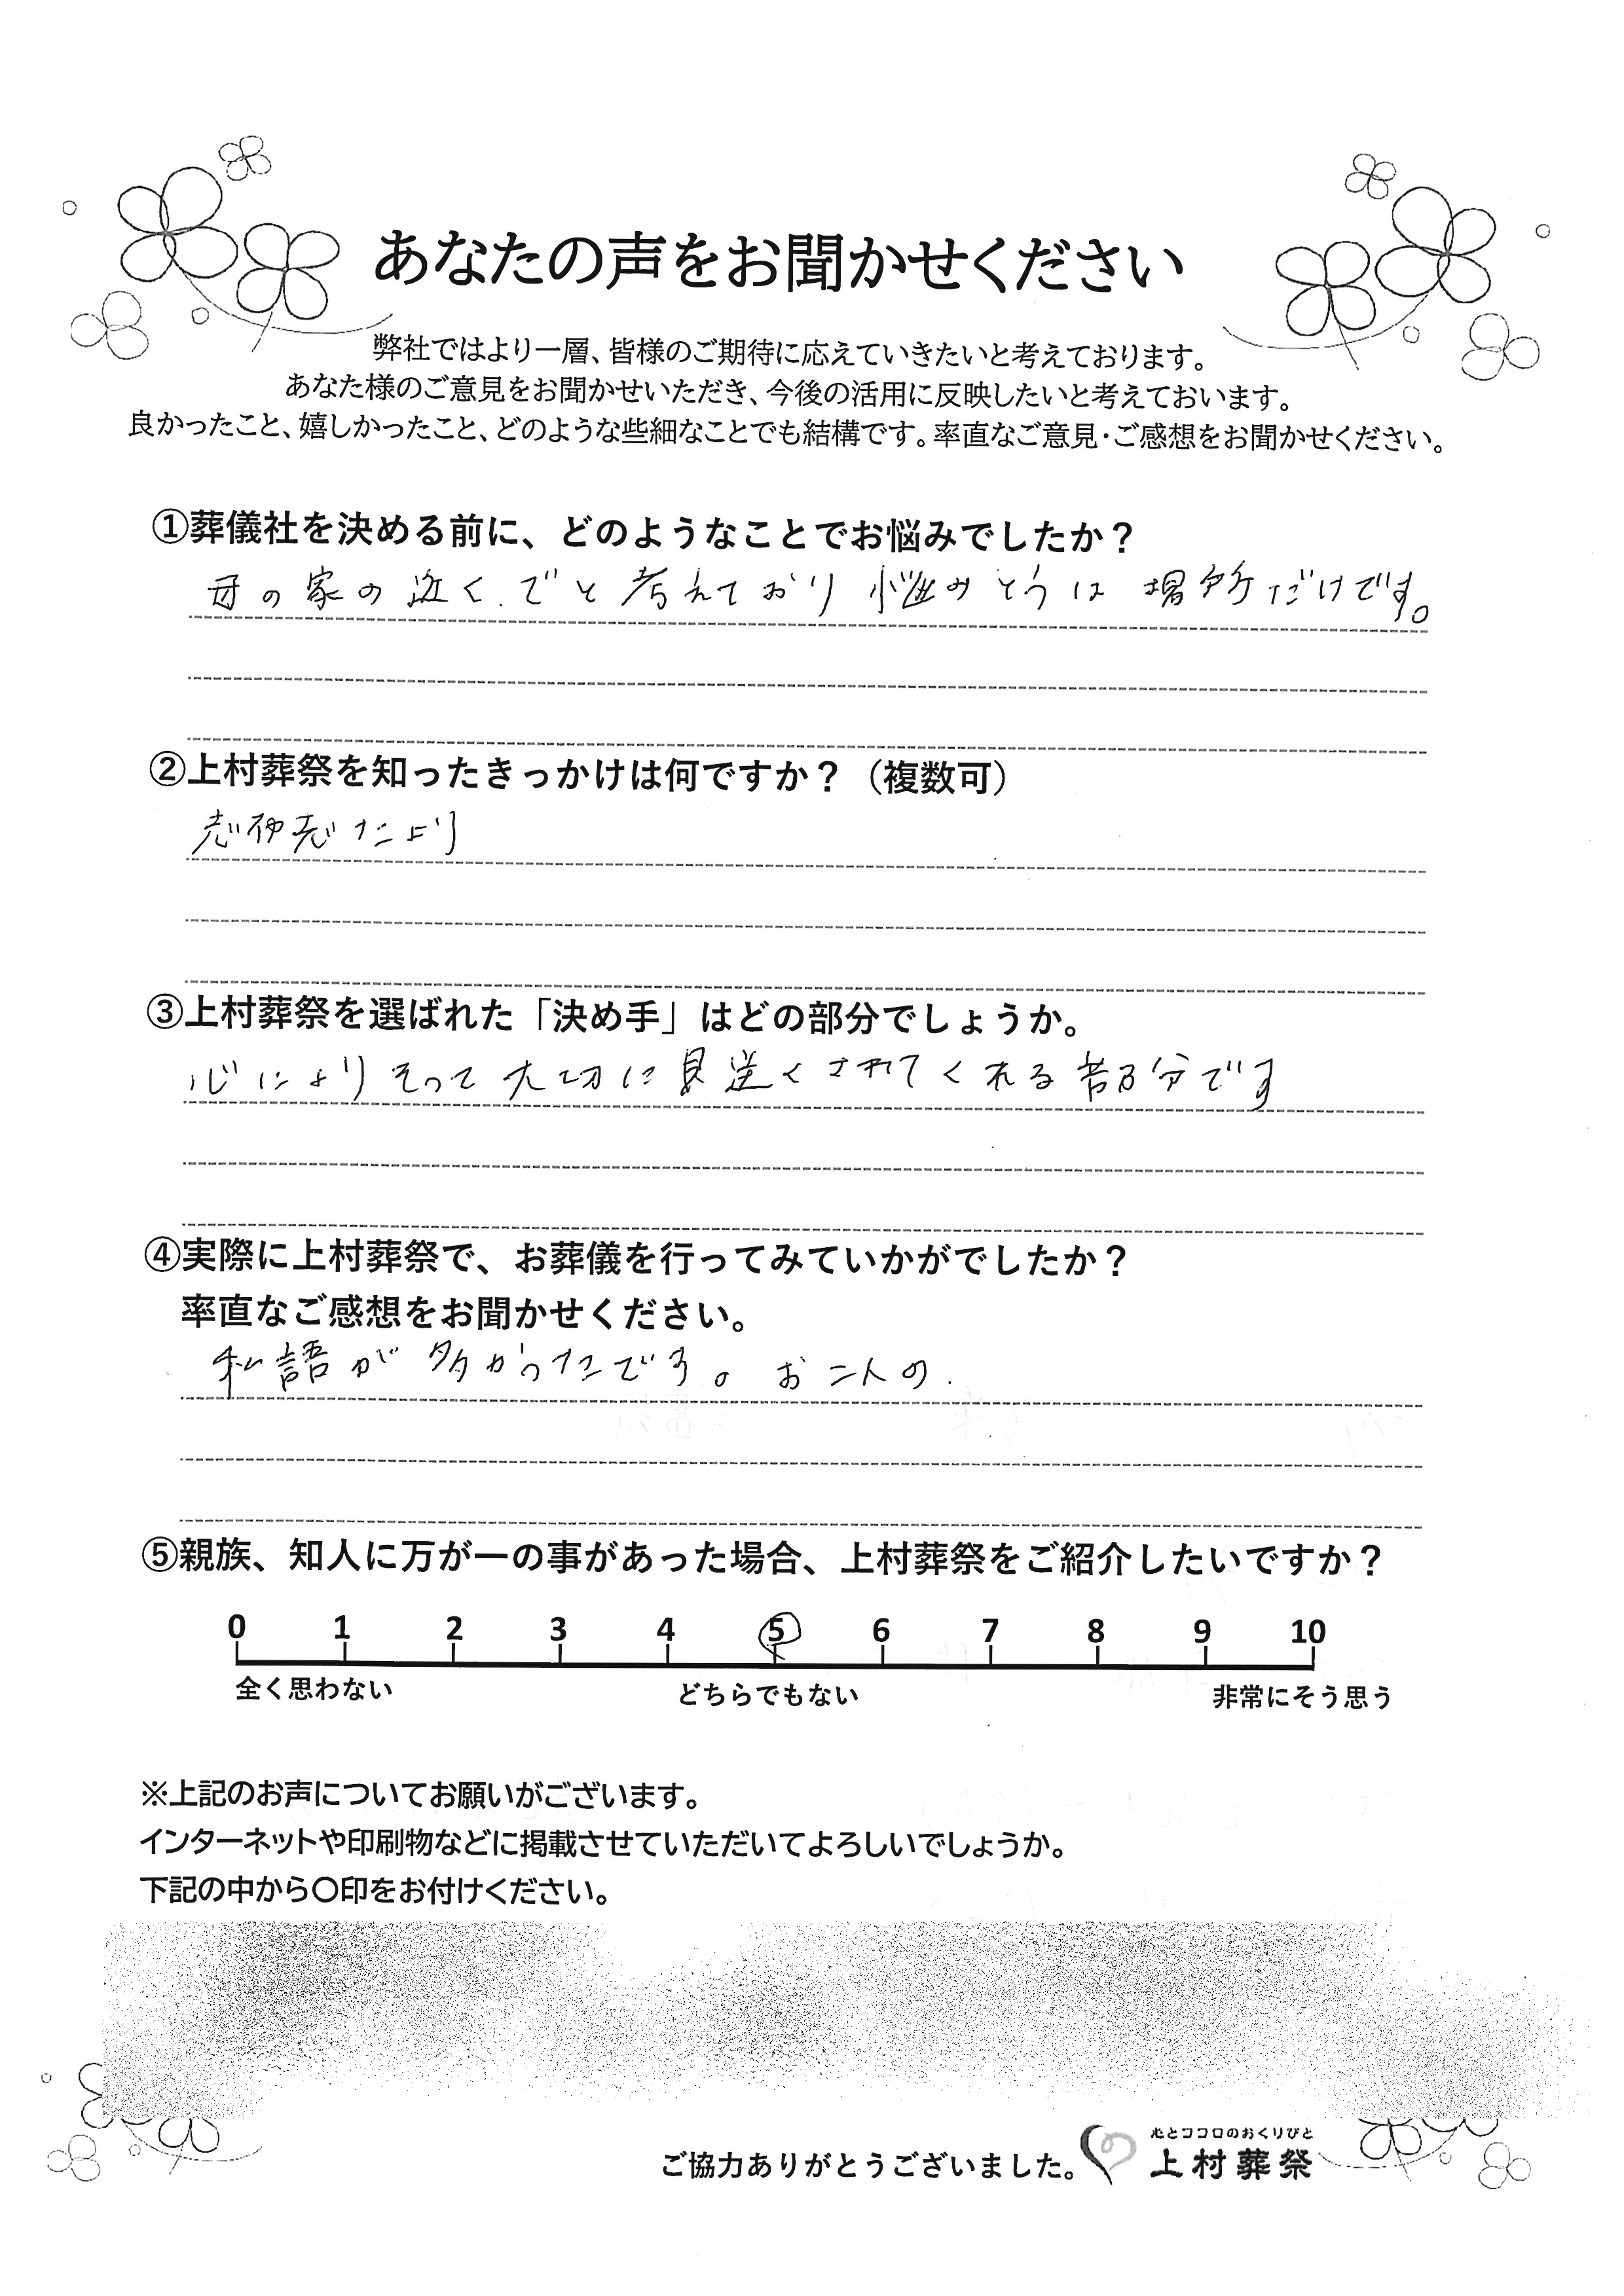 あなたの声をお聞かせください
弊社ではより一層、皆様のご期待に応えていきたいと考えております。
あなた様のご意見をお聞かせいただき、今後の活用に反映したいと考えておいます。
良かったこと、嬉しかったこと、どのような些細なことでも結構です。率直なご意見・ご感想をお聞かせください。
①葬儀社を決める前に、どのようなことでお悩みでしたか？
母の家の近く.でと考えており 悩みとうは 場所だけです。
②上村葬祭を知ったきっかけは何ですか？（複数可）
志布志だより
③上村葬祭を選ばれた「決め手」はどの部分でしょうか。
心によりそって大切に見送くされてくれる部分です
④実際に上村葬祭で、お葬儀を行ってみていかがでしたか？
率直なご感想をお聞かせください。
私語が多かったです。お二人の.
⑤親族、知人に万が一の事があった場合、上村葬祭をご紹介したいですか？
0 1 2 3 4 5 6 7 8 9 10
全く思わない どちらでもない 非常にそう思う
※上記のお声についてお願いがございます。
インターネットや印刷物などに掲載させていただいてよろしいでしょうか。
下記の中から〇印をお付けください。
心とココロのおくりびと
ご協力ありがとうございました。 上村葬祭